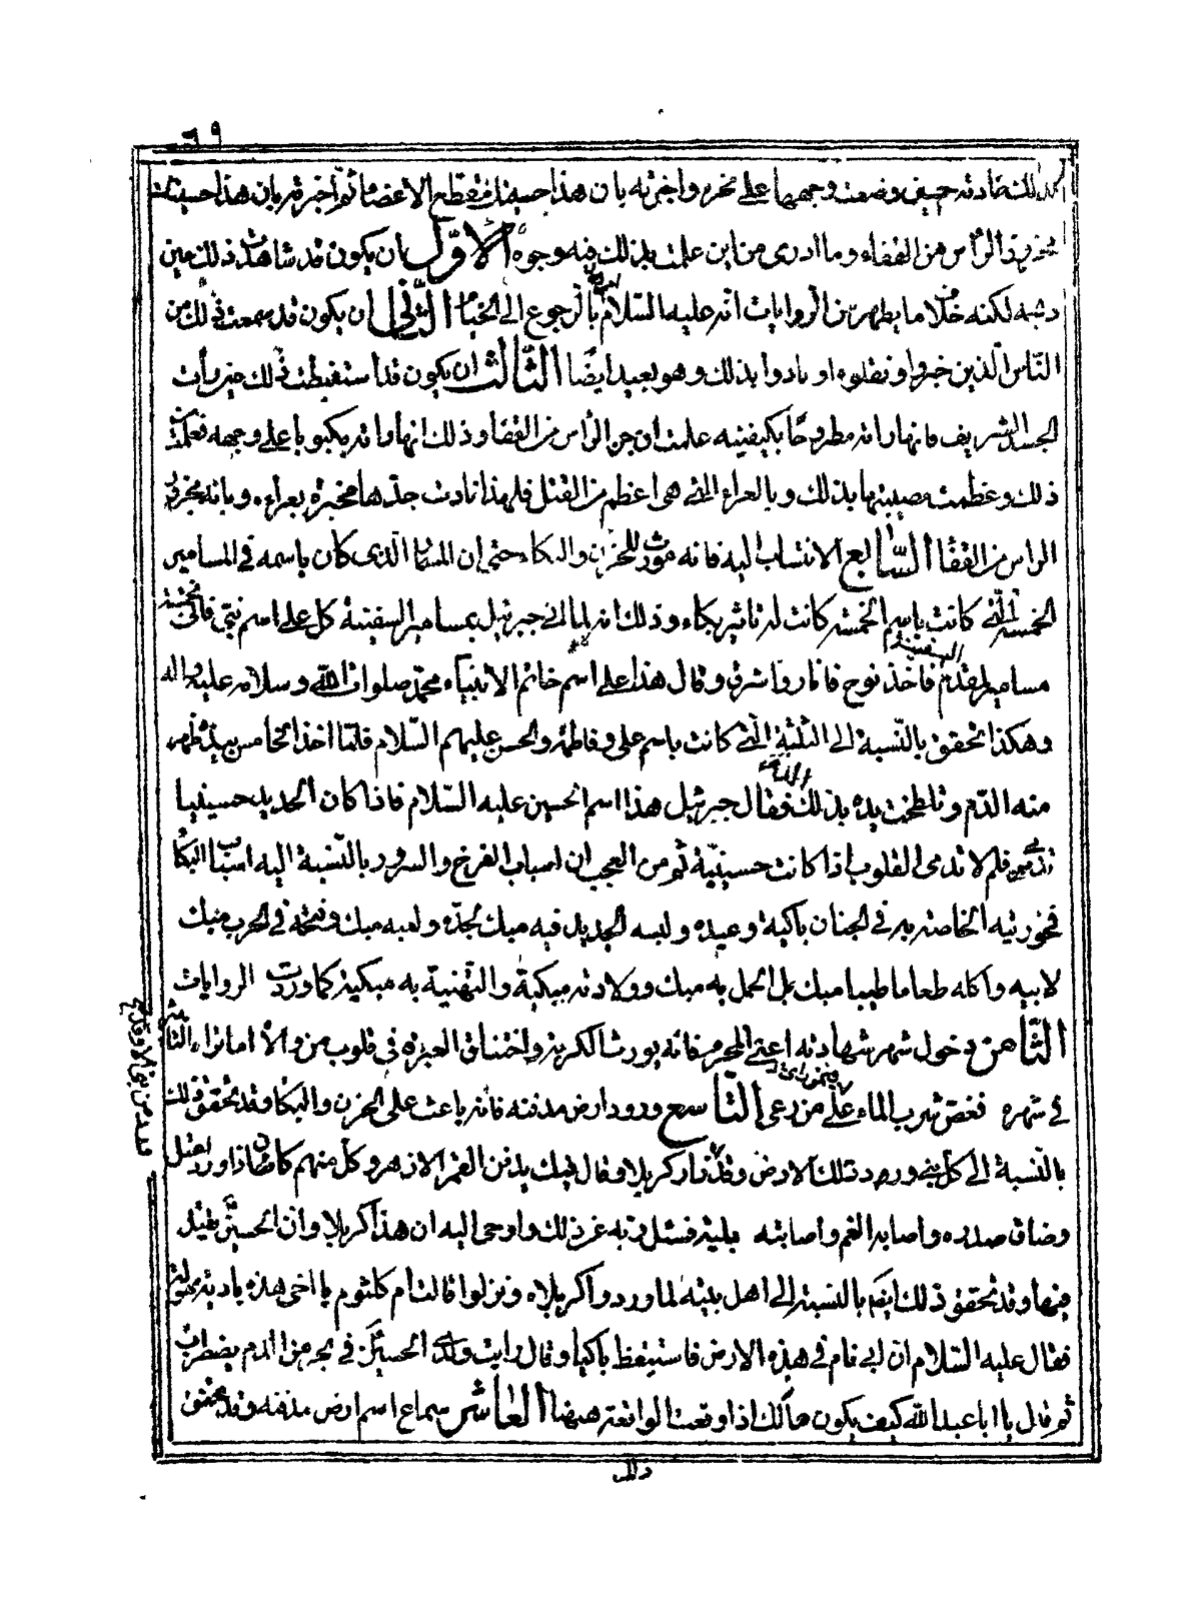 ٦٩
كذلك نادته حين وضعت وجهها على نحره واخبرته بان هذا حسينك مقطع الاعضاء ثم اخبرته بان هذا حسينك
محزوز الرأس من القفاء وما ادرى من اين علمت بذلك فيه وجوه الاوّل ان يكون قد شاهدت ذلك حين
دفنه لكنه خلاف ما يظهر من الروايات انه عليه السّلام امرها بالرجوع الى الخباء الثّاني ان يكون قد سمعت ذلك من
النّاس الّذين خبروا ونقلوه او نادوا بذلك وهو بعيد ايضًا الثّالث ان يكون قد استنبطت ذلك حين رأت
الجسد الشريف فانها رأته مطروحًا بكيفيته علمت ان جز الرأس من القفا وذلك انها رأته مكبوبا على وجهه فعلمت
ذلك وعظمت مصيبتها بذلك وبالعراء الّتى هى اعظم من القتل فلهذا نادت جدّها مخبرة بعراءه وبانه محزوز
الراس من القفا السّابع الانتساب اليه فانه مورث للحزن والبكاء حتى ان المسمار الّذى كان باسمه فى المسامير
الخمسة الّتى كانت باسم الخمسة كانت له تاثير بكاء وذلك انه لما اتى جبرئيل بمسامير السفينة كل على اسم نبى فاتى بخمسة
مسامير لمقدم السفينة فاخذ نوح فانار واشرق وقال هذا على اسم خاتم الانبياء محمّد صلوات اللّه وسلامه عليه واله
وهكذا تحقق بالنّسبة الى الثلثة الّتى كانت باسم على وفاطمة والحسن عليهم السّلام فلمّا اخذ الخامس بيده ظهر
منه الدّم وتلطخت يده بذلك الدم فقال جبرئيل هذا اسم الحسين عليه السّلام فاذا كان الحديد حسينيا
تدمى فلم لا تدمى القلوب اذا كانت حسينيّة ثم من العجب ان اسباب الفرح والسرور بالنّسبة اليه اسباب البكاء
فحوريته الخاصة به فى الجنان باكية وعيده ولبسه الجديد فيه مبك لجدّه ولعبه مبك وفتحه فى الحرب مبك
لابيه واكله طعاما طيبا مبك بل الحمل به مبك وولادته مبكية والتهنية به مبكية كما وردت الروايات
الثّامن دخول شهر شهادته اعنى المحرم فانه يورث الكربة واختناق العبرة فى قلوب من والاه
فى شهره فغص شرب الماء على من رعى التّاسع ورود ارض مدفنه فانه باعث على الحزن والبكا وقد تحقق ذلك
بالنّسبة الى كل نبى ورود تلك الارض وقد زار كربلا وقال فيك يدفن القمر الازهر وكل منهم كان اذا ورد اعتل
وضاق صدره واصابه الغم واصابته بلية فسئل ربه عن ذلك واوحى اليه ان هذا كربلا وان الحسينؑ يقتل
فيها وقد تحقق ذلك ايضا بالنسبة الى اهل بيته لما وردوا كربلاء ونزلوا قالت ام كلثوم يا اخى هذه بادية مهولة
فقال عليه السّلام ان ابى نام فى هذه الارض فاستيقظ باكيا وقال رايت ولدى الحسينؑ فى بحر من الدم يضطرب
ثم قال يا ابا عبد اللّه كيف يكون حالك اذا وقعت الواقعة هيهنا العاشر سماع اسم ارض مدفنه وقد تحقق
ذلك